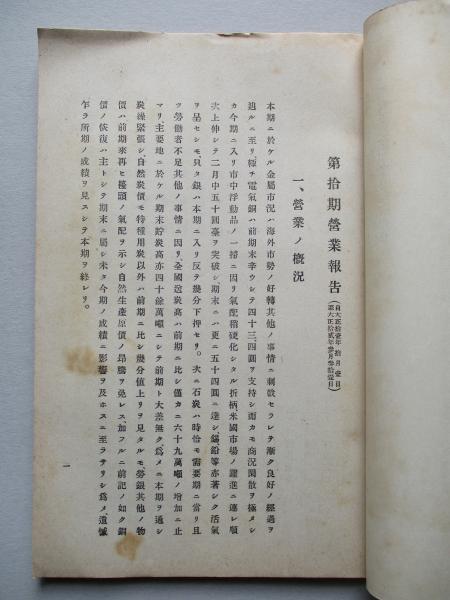 第拾期營業報告
（自大正拾壹年拾月壹日
至大正拾貳年參月參拾壹日）
一、營業ノ概況
本期ニ於ケル金屬市況ハ海外市勢ノ好轉其他ノ事情ニ刺戟セラレテ漸ク良好ノ經過ヲ
辿ルニ至リ殊ニ電氣銅ハ前期末辛ウシテ四十三、四圓ヲ支持シ而カモ商況閑散ヲ極メシ
カ今期ニ入リ市中浮動品ノ一掃ニ因リ氣配稍硬化シタル折柄、米國市場ノ躍進ニ連レ順
次上伸シテ二月中五十圓臺ヲ突破シ期末ニハ更ニ五十四圓ニ達シ、錫、鉛等亦著シク活氣
ヲ呈セシモ、只タ銀ハ本期ニ入リ反テ幾分下押セリ。次ニ石炭ハ時恰モ需要期ニ當リ且
ツ勞働者不足其他ノ事情ニ因リ、全國送炭高ハ前期ニ比シ僅カニ六十九萬噸ノ增加ニ止
マリ主要地ニ於ケル期末貯炭高亦四十餘萬噸ニシテ前期ト大差無ク、爲メニ本期ヲ通シ
炭況緊張シ、自然炭價モ特種用炭以外ハ前期ニ比シ幾分値上リヲ見タルモ、勞銀其他ノ物
價ハ前期來再ヒ擡頭ノ氣配ヲ示シ自然生產原價ノ昂騰ヲ免レス、加フルニ前記ノ如ク銅
價ノ恢復ハ主トシテ期末ニ屬シ未タ今期ノ成績ニ影響ヲ及ホスニ至ラサリシ爲メ、遺憾
乍ラ所期ノ成績ヲ見スシテ本期ヲ終レリ。
一